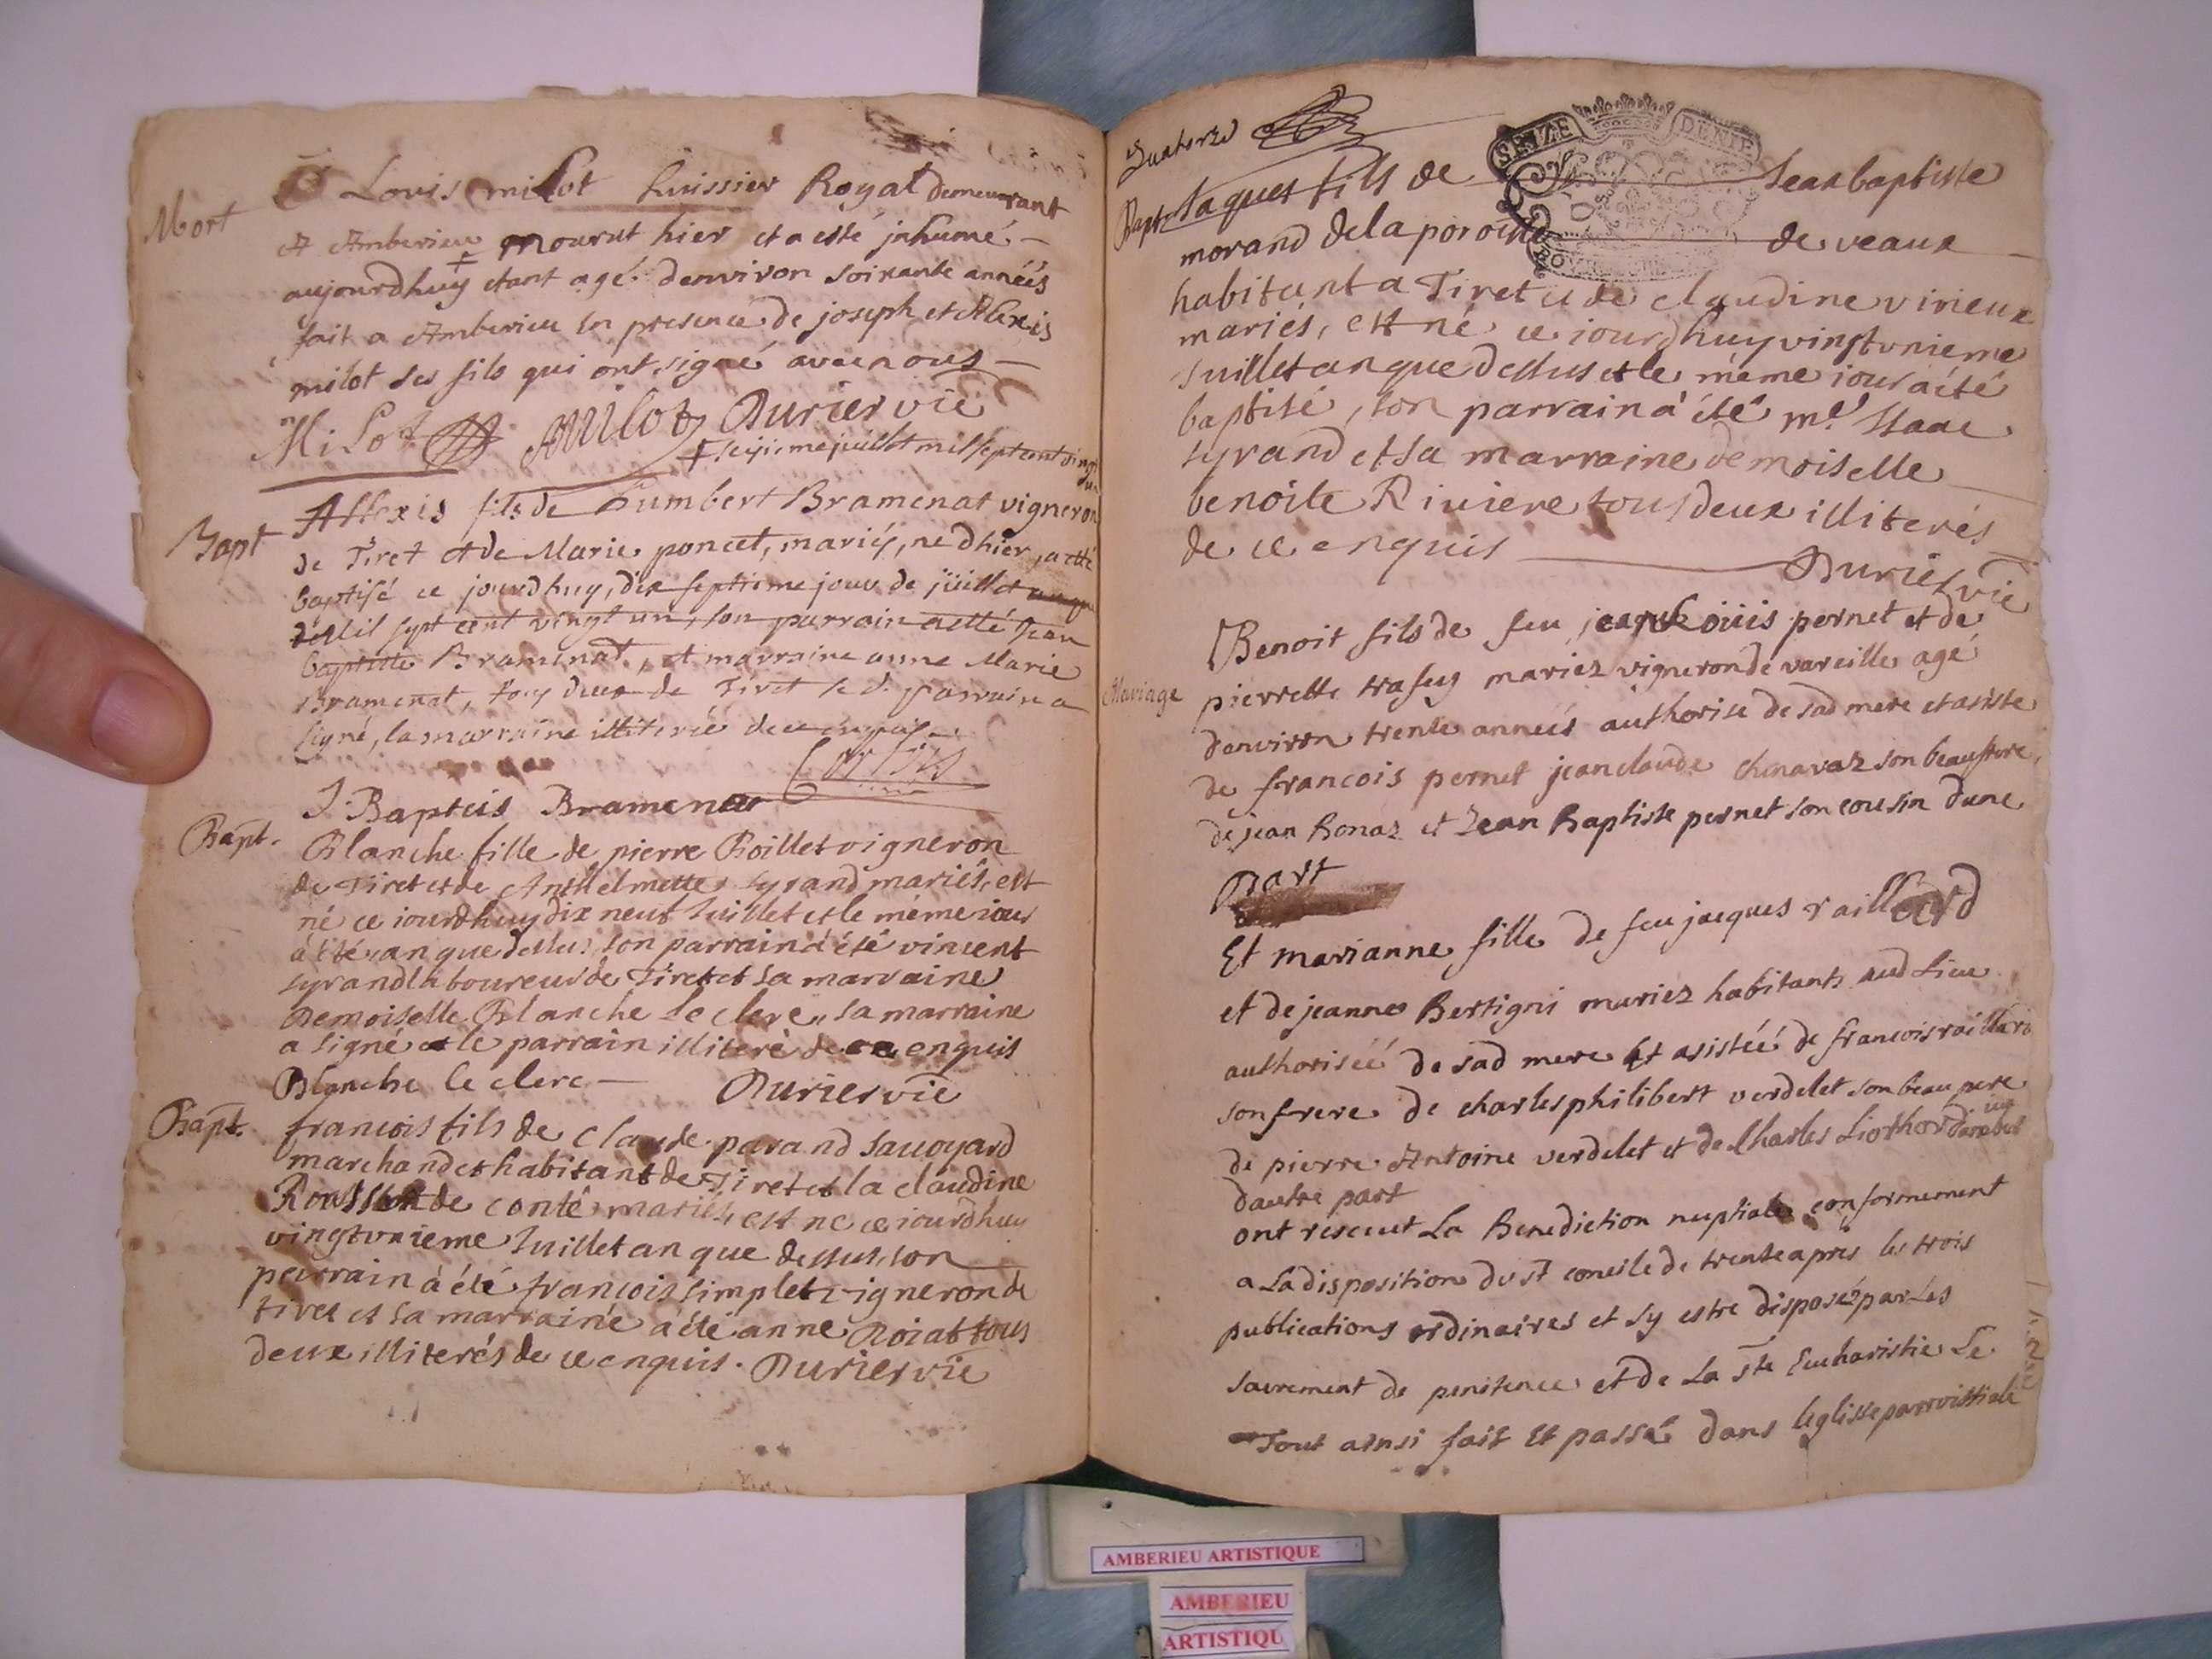 Mort
Louis milot huissier Royal demeurant
A Amberieu + mourut hier et a esté jnhumé
aujourdhuy etant agé denviron soixante années
fait a Amberieu en presence de joseph et Alexis
milot ses fils qui ont signé avec nous
Milot AMilot Durier vie
+ seizieme juillet mil sept cent vingt un
Bapt
Allexis fils de humbert Bramenat vigneron
de Tiret et de Marie poncet, mariés, né dhier, a etté
baptisé ce jourdhuy, dix septieme jour de juillet
Mil sept cent vingt un, son parrain a etté Jean
baptiste Bramenat, et marraine anne Marie
Bramenat, tous deux de Tiret le d. parrain a
signé, la marraine illiterée de ce enquise
J. Baptiis Bramena
Bapt.
Blanche fille de pierre Boillet vigneron
de Tiret et de Anthelmette syrand mariés, est
né ce iourdhuy dix neuf Juillet et le méme iour
à été an que dessus son parrain à été vincent
syrand laboureur de Tiret et sa marraine
Demoiselle Blanche Le clerc, sa marraine
a signé et le parrain illiteré de ce enquis
Blanche le clerc Durier vie
Bapt.
francois fils de Claude parand Savoyard
marchand et habitant de Tiret et la claudine
Rousset de conte mariés, est né ce iourdhuy
vingtunieme Juillet an que dessus, son
parrain à été francois simplet vigneron de
tiret et sa marraine à été anne Noiat tous
deux illiterés de ce enquis. Durier vie
Quatorze
SEIZE DENIE
Bapt
Jaques fils de Jean baptiste
morand de la poroisse de veaux
habitant a Tiret et de claudine virieux
mariés, est né ce iourdhuy vingtunieme
Juillet an que dessus et le méme iour a été
baptisé, son parrain a été mr. Isaac
syrand et sa marraine demoiselle
benoite Riviere tous deux illiterés
de ce enquis
Durier vie
Mariage
Benoit fils de feu jean Loüis pernet et de
pierrette trafey mariez vigneron de vareilles agé
denviron trente années authorise de sad mere et asiste
de francois pernet jean claude chenavaz son beaufrere,
de jean Bonaz et Jean Baptiste pernet son cousin dune
Part
Et marianne fille de feu jacques raillard
et de jeanne Bertigni mariez habitants aud Lieu
authorisée de sad mere Et asistée de francois raillard
son frere de charles philibert verdelet son beau pere
de pierre Antoine verdelet et de Charles Liothord
dautre part
ont resceut La Benediction nuptiale conformement
a La disposition du st concile de trente apres les trois
publications ordinaires et sy estre disposéz par Les
sacrement de penitence et de La ste Eucharistie Le
Tout ainsi fait Et passé dans leglisse parroissiale
AMBERIEU ARTISTIQUE
AMBERIEU
ARTISTIQU